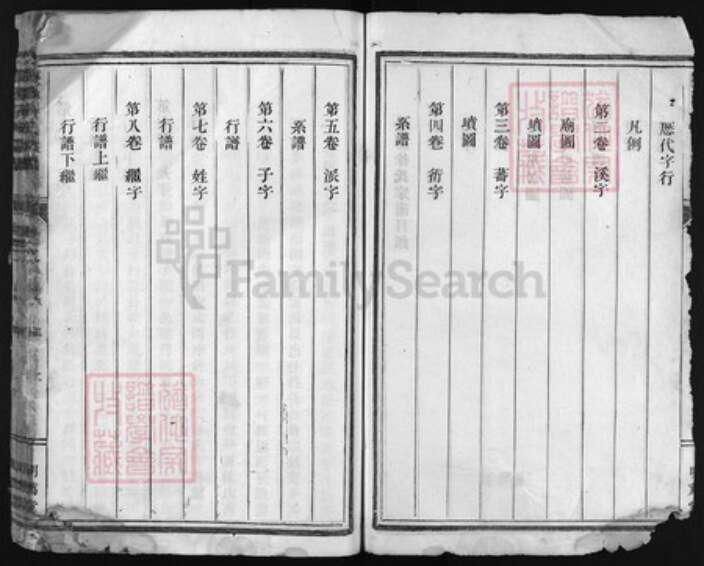 歷代字行
凡例
第二卷 溪字
廟圖
墳圖
第三卷 蕃字
墳圖
第四卷 衍字
系譜
第五卷 派字
系譜
第六卷 子字
行譜
第七卷 姓字
行譜
第八卷 繼字
行譜上繼
行譜下繼
FamilySearch